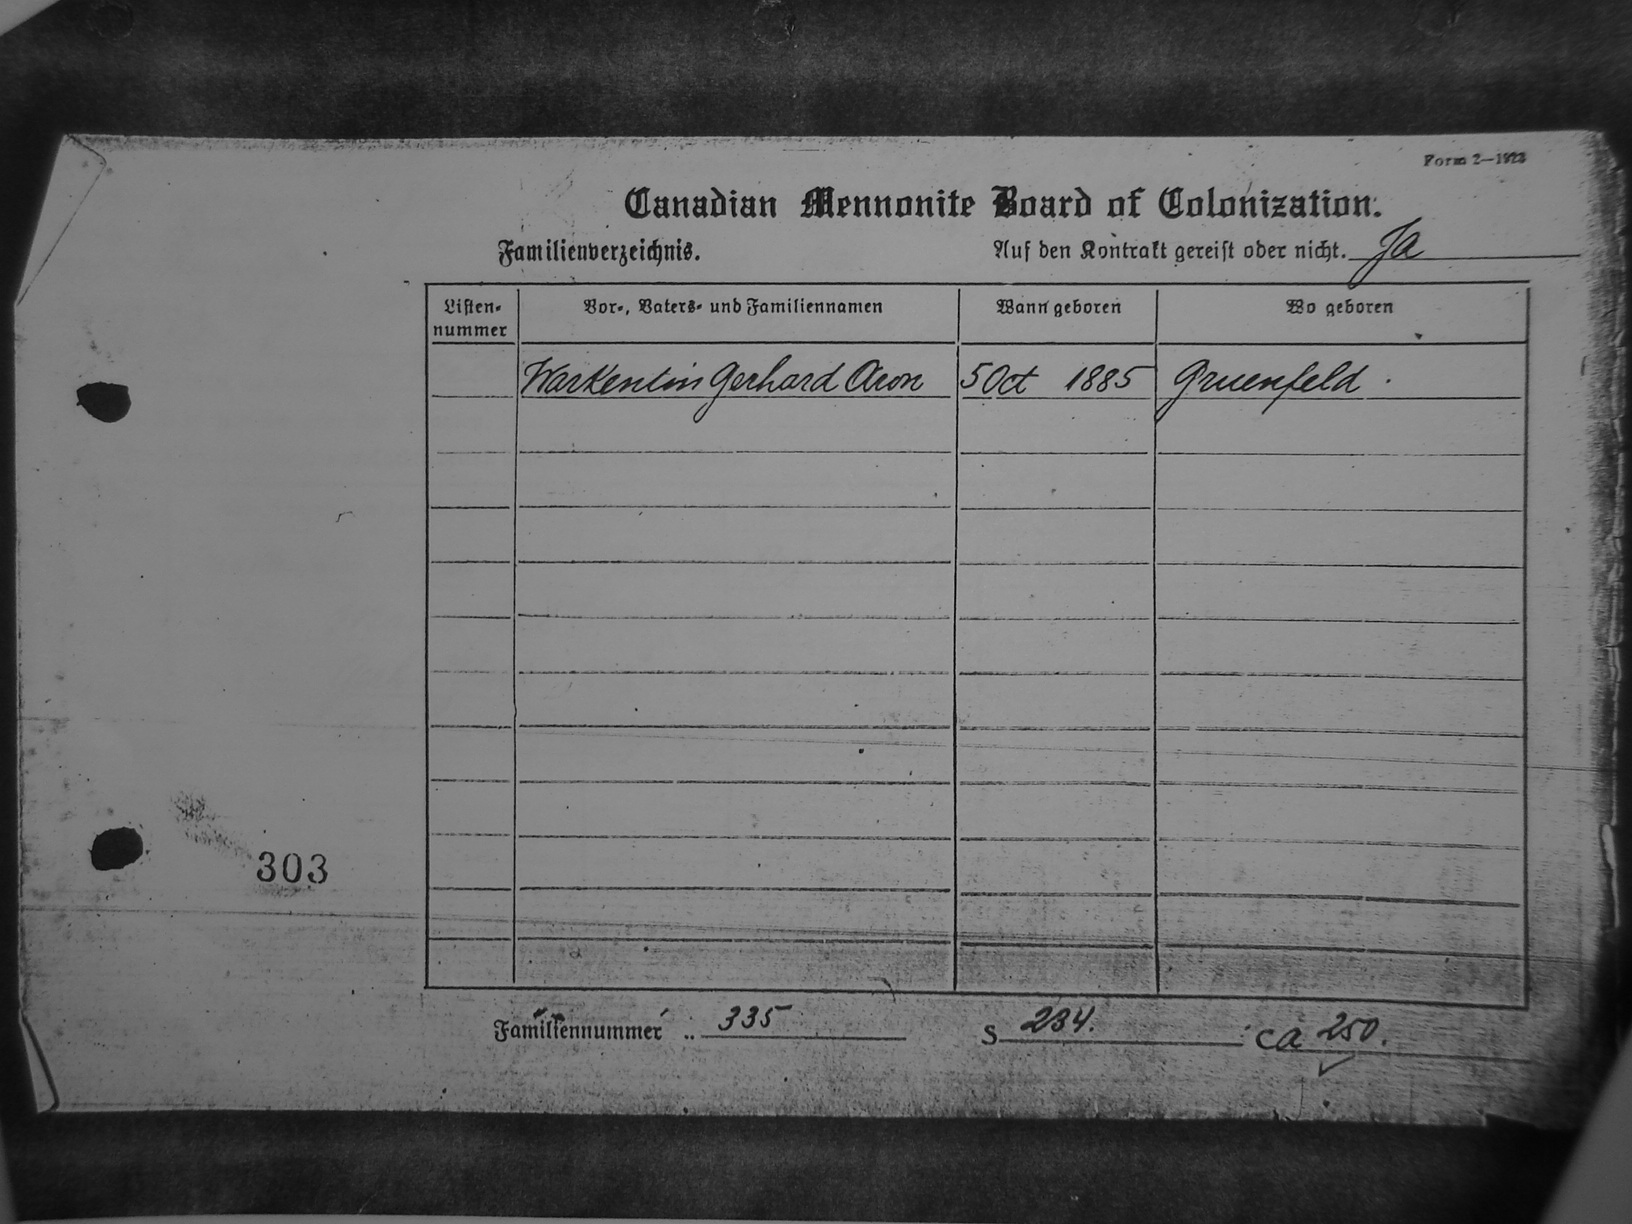 Form 2—1923
Canadian Mennonite Board of Colonization.
Familienverzeichnis. Auf den Kontrakt gereist oder nicht. Ja
Listen-nummer Vor-, Vaters- und Familiennamen Wann geboren Wo geboren
Warkentin Gerhard Aron 5 Oct 1885 Gruenfeld.
303
Familiennummer .. 335 S 234. ca 250.